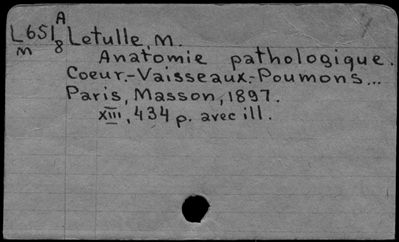 A
L651 Letulle, M.
m 8 Anatomie pathologique.
Coeur.-Vaisseaux.-Poumons...
Paris, Masson, 1897.
XIII, 434 p. avec ill.